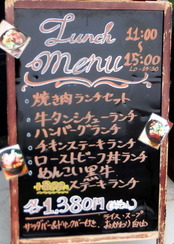 Lunch 11:00
～
Menu 15:00
LO・14:30
・焼き肉ランチセット
・牛タンシチューランチ
・ハンバーグランチ
・チキンステーキランチ
・ローストビーフ丼ランチ
・めんこい黒牛
ステーキランチ
各1,380円
サラダバー&ドリンクバー付き
ライス・スープ
おかわり自由